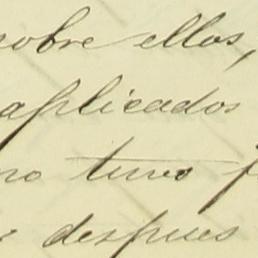 sobre ellos,
aplicados
no tuvo
despues